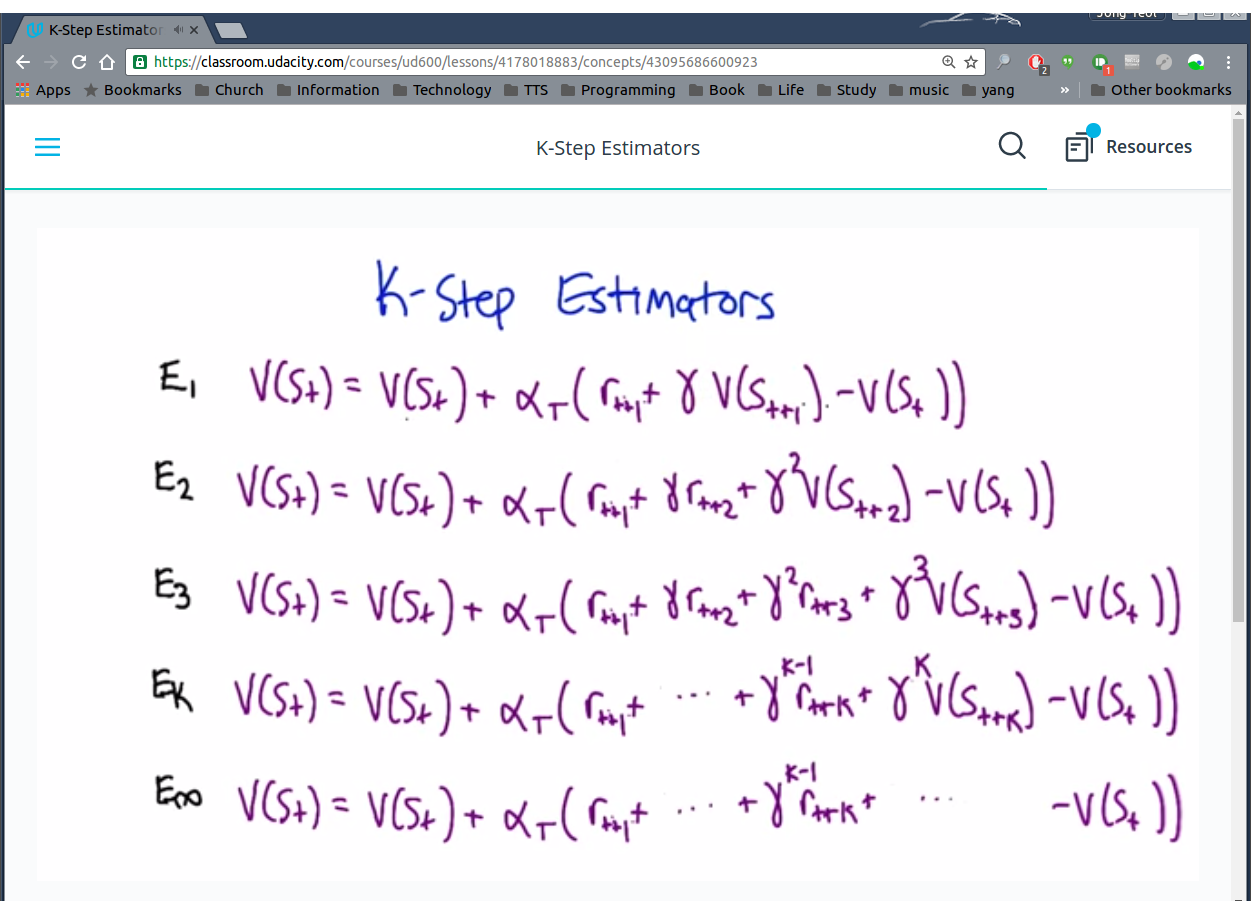 Jong Yeol
K-Step Estimator
https://classroom.udacity.com/courses/ud600/lessons/4178018883/concepts/43095686600923
2
1
Apps Bookmarks Church Information Technology TTS Programming Book Life Study music yang » Other bookmarks
K-Step Estimators
Resources
K-Step Estimators
E₁ V(Sₜ) = V(Sₜ) + α_T( rₜ₊₁ + γ V(Sₜ₊₁) - V(Sₜ))
E₂ V(Sₜ) = V(Sₜ) + α_T( rₜ₊₁ + γ rₜ₊₂ + γ² V(Sₜ₊₂) - V(Sₜ))
E₃ V(Sₜ) = V(Sₜ) + α_T( rₜ₊₁ + γ rₜ₊₂ + γ² rₜ₊₃ + γ³ V(Sₜ₊₃) - V(Sₜ))
E_K V(Sₜ) = V(Sₜ) + α_T( rₜ₊₁ + ... + γ^{K-1} r_{t+K} + γ^K V(S_{t+K}) - V(Sₜ))
E_∞ V(Sₜ) = V(Sₜ) + α_T( rₜ₊₁ + ... + γ^{K-1} r_{t+K} + ... - V(Sₜ))